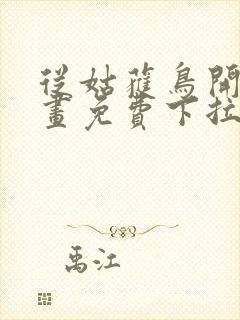 從姑蘿鳥開
畫免費下拉
禹江